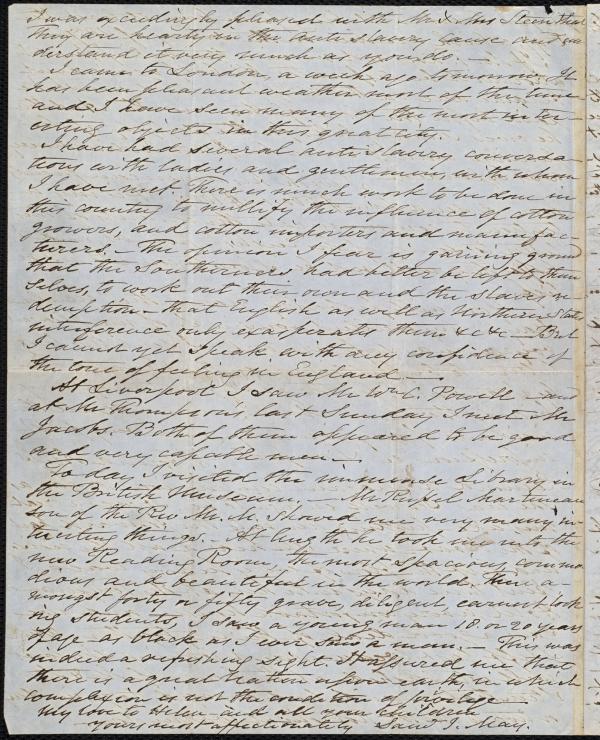 I was exceedingly pleased with Mr & Mrs Steinthal
They are hearty in the anti-slavery cause and un
derstand it very much as you do. —
I came to London, a week ago tomorrow. It
has been pleasant weather most of the time
and I have seen many of the most inter-
esting objects in this great city.
I have had several anti slavery conversa-
tions with ladies and gentlemen, with whom
I have met. There is much work to be done in
this country to nullify the influence of cotton
growers, and cotton importers and manufac-
turers. — The opinion I fear is gaining ground
that the Southerners had better be left to them
selves, to work out their own and the slaves re-
demption — that English as well as Northern States
interference only exasperates them &c &c — But
I cannot yet speak with any confidence of
the tone of feeling in England. —
At Liverpool I saw Mr Wm C. Powell — and
at Mr Thompson's, last Sunday, I met Mr
Jacobs. Both of them appeared to be good
and very capable men —
To day I visited the immense Library in
the British Museum. — Mr Russel Martineau
son of the Rev Mr. M. showed me very many in-
teresting things. — At length he took me into the
new Reading Room, the most spacious, commo-
dious and beautiful in the world. There a-
mongst forty or fifty grave, diligent, earnest look
ing students, I saw a young man 18 or 20 years
of age as black as I ever saw a man. — This was
indeed a refreshing sight. It assured me that
there is a great nation upon earth, in which
complexion is not the condition of privilege —
My love to Helen and all your children
yours most affectionately Saml J. May.